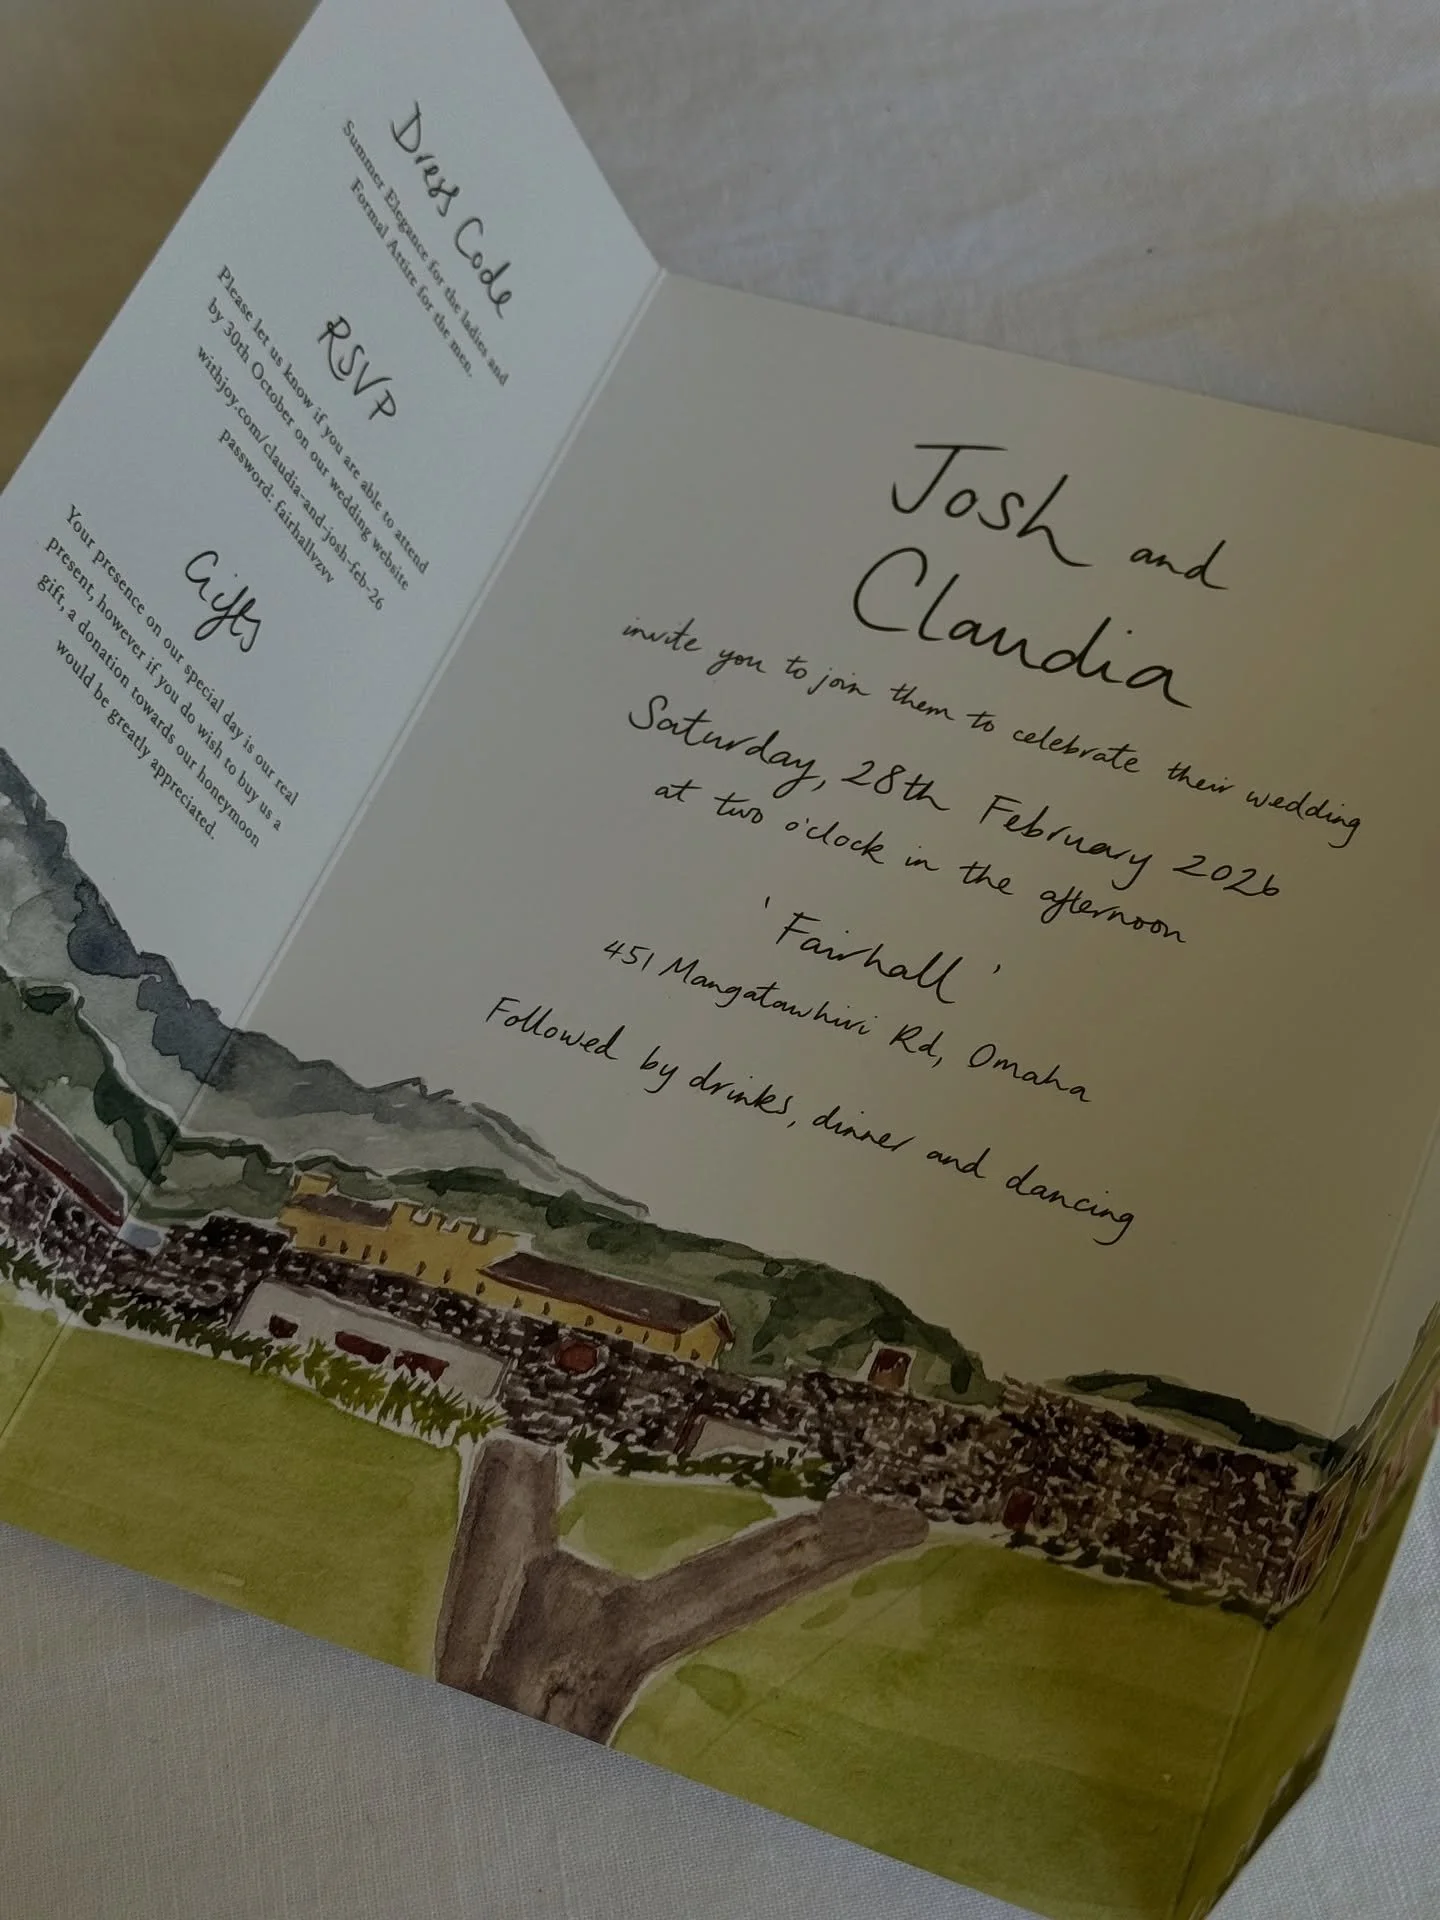 Dress Code
Summer Elegance for the ladies and
Formal Attire for the men.
RSVP
Please let us know if you are able to attend
by 30th October on our wedding website
withjoy.com/claudia-and-josh-feb-26
password: fairhallvzvv
Gifts
Your presence on our special day is our real
present, however if you do wish to buy us a
gift, a donation towards our honeymoon
would be greatly appreciated.
Josh and
Claudia
invite you to join them to celebrate their wedding
Saturday, 28th February 2026
at two o'clock in the afternoon
'Fairhall'
451 Mangatawhiri Rd, Omaha
Followed by drinks, dinner and dancing